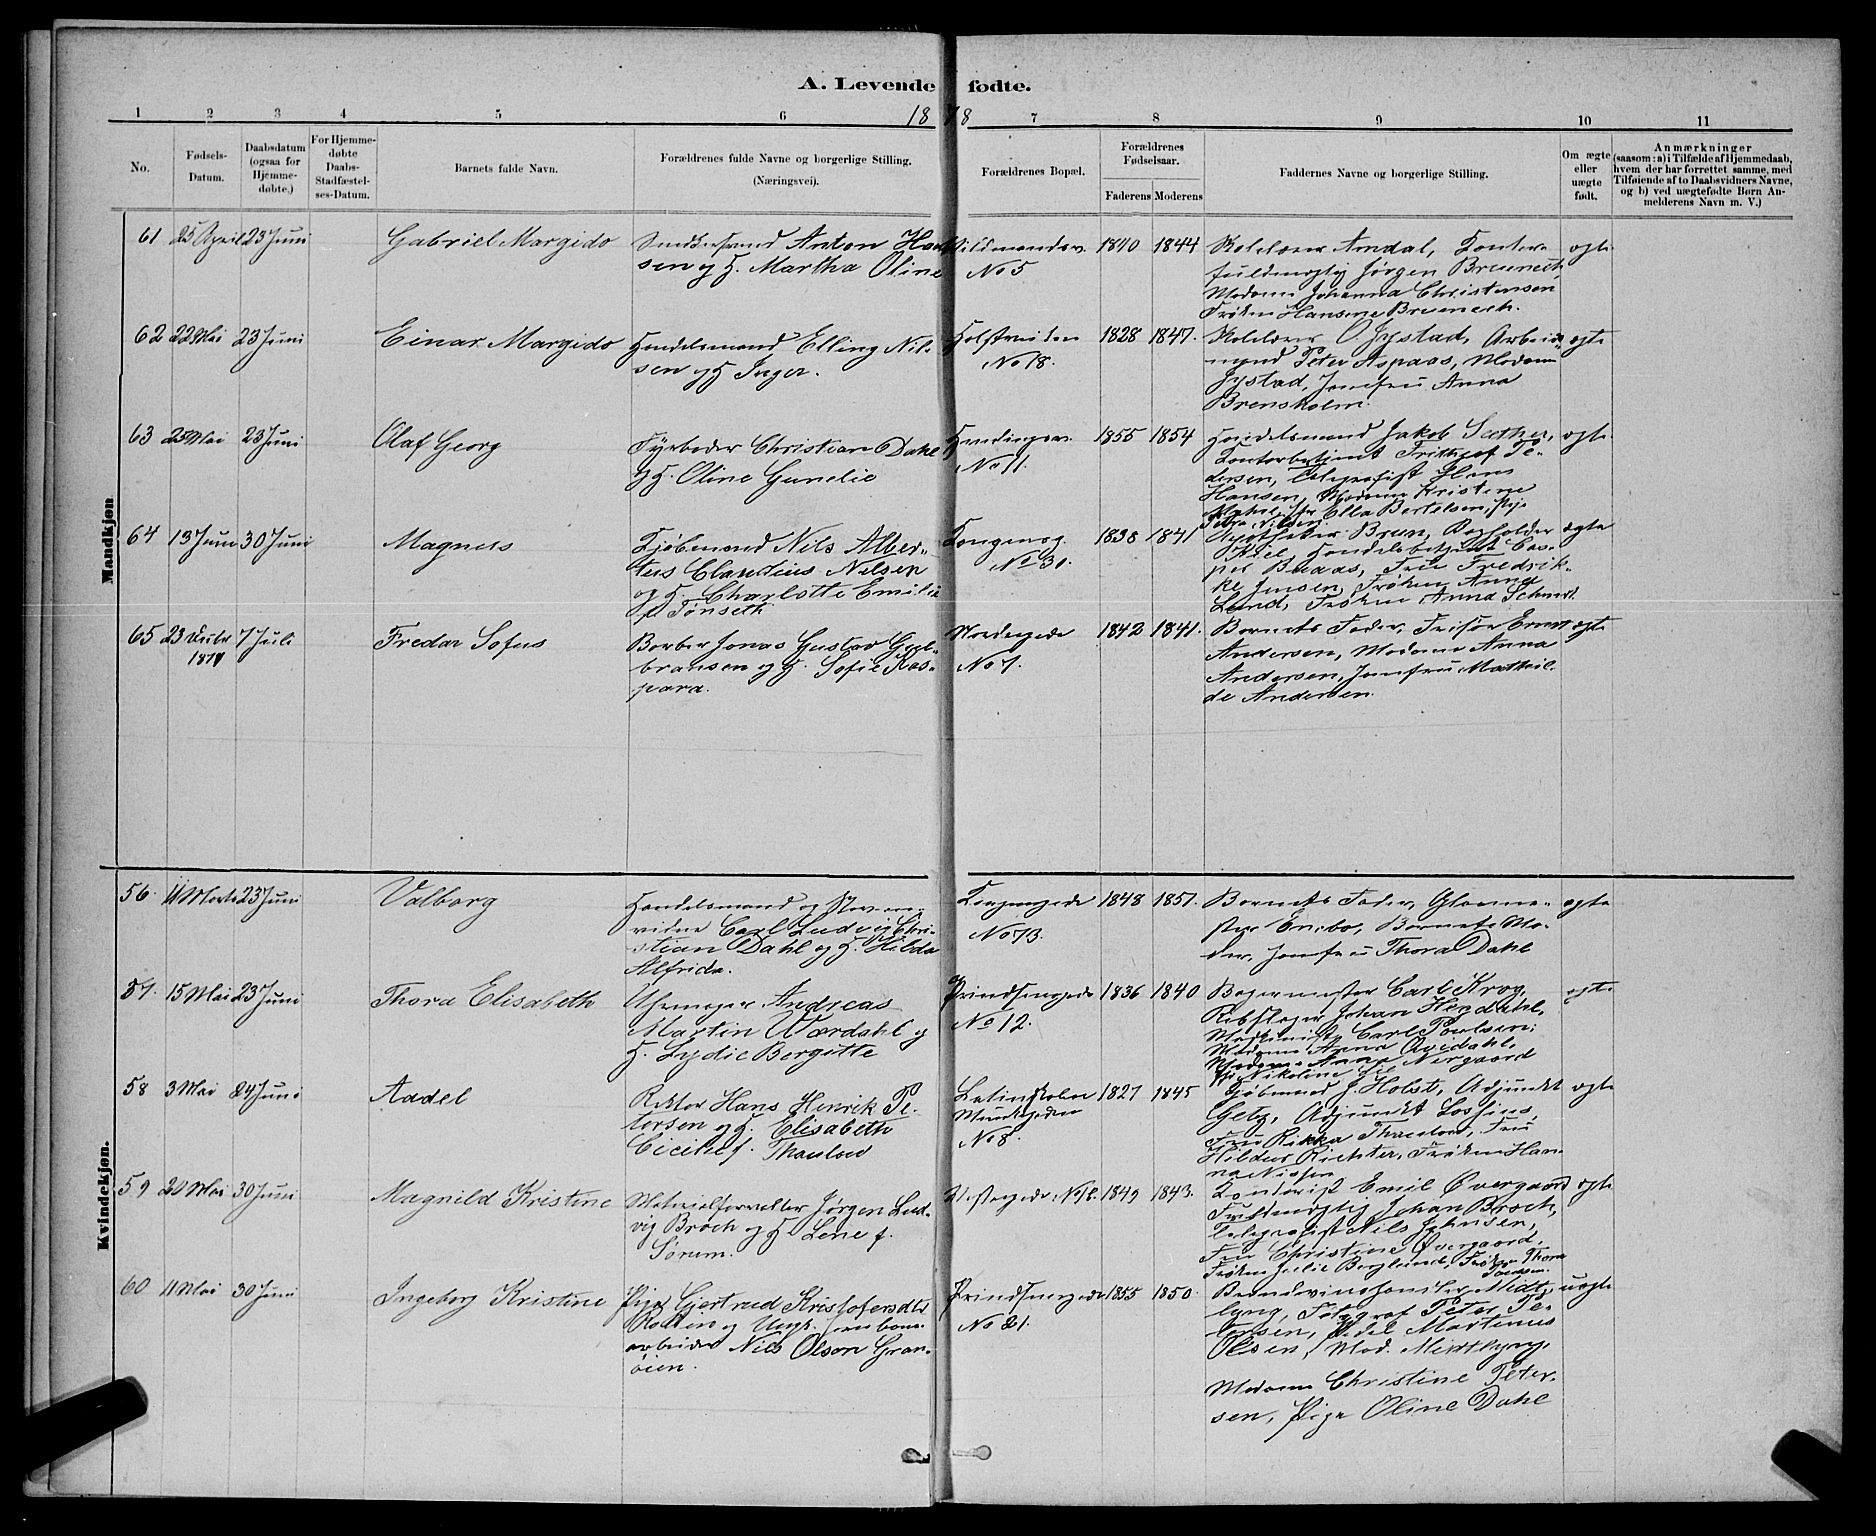 A. Levende fødte.
1878
1 2 3 4 5 6 7 8 9 10 11
No.
Fødsels-Datum.
Daabsdatum (ogsaa for Hjemme-døbte.)
For Hjemme-døbte Daabs-Stadfæstel-ses-Datum.
Barnets fulde Navn.
Forældrenes fulde Navne og borgerlige Stilling.
(Næringsvei).
Forældrenes Bopæl.
Forældrenes Fødselsaar.
Faderens Moderens
Faddernes Navne og borgerlige Stilling.
Om ægte eller uægte født.
Anmærkninger
(saasom: a) i Tilfælde af Hjemmedaab,
hvem der har forrettet samme, med
Tilføiende af to Daabsvidners Navne,
og b) ved uægtefødte Børn An-
melderens Navn m. V.)
Mandkjøn
61 25 April 23 Juni Gabriel Margido
Anton Han
sen og H. Martha Oline
No 5
1840 1844
Arndal,
Jørgen Breunech,
Madame Johanna Christensen
Frøken Hansine Breunech.
ægte
62 22 Mai 23 Juni Einar Margido
Handelsmand Elling Nil
sen og H Inger.
No 18.
1828 1847.
O. Gystad, Arbeids
mand Peter Aspaas, Madam
Gystad, Jomfru Anna
Brensholm.
ægte
63 25 Mai 23 Juni Olaf Georg
Fyrbøder Christian Dahl
og H. Oline Gunelie
No 11.
1855 1854
Handelsmand Jakob Sæther,
Kontorbetjent Frithjof Pe-
dersen, Telegrafist Hans
Hansen, Madame Kristine
Ella Bertelsen, Pige
Petra Nilsen.
ægte
64 13 Juni 30 Juni Magnus
Kjøbmand Nils Alber-
tus Claudius Nilsen
og H. Charlotte Emilie
f. Tønseth
Kongensg.
No 30.
1838 1841
Apotheker Brun, Bogholder
Kiel, Handelsbetjent Cas-
per Buaas, Fru Fredrik-
ke Jensen, Frøken Anna
Lund, Frøken Anna Schmidt.
ægte
65 23 1877 7 Juli Fredar Sofus
Barber Jonas Gustav Gul-
bransen og H. Sofie Kas-
para.
Nordregade
No 7.
1842 1841.
Barnets Fader, Frisør Ernst
Andersen, Madame Anna
Andersen, Jomfru Mathil
de Andersen.
ægte
Kvindekjøn.
56. 11 Marts 23 Juni Valborg
Handelsmand og
Carl Ludvig Chri-
stian Dahl og H. Hilda
Alfrida.
Kongensgade
No 73.
1848 1857.
Barnets Fader, Glasme-
ster Enebo, Barnets Mo-
der, Jomfru Thora Dahl
ægte
57. 15 Mai 23 Juni Thora Elisabeth
Uhrmager Andreas
Martin Wærdahl og
H. Lydie Bergitte
Prindsensgade
No 12.
1836 1840
Bagermester Carl Krog,
Rebslager Johan Hegdahl,
Maskinist Carl Poulsen,
Madame Anna Qvidahl,
Madame Anna Nergaard
Nikoline Lie
ægte
58 3 Mai 24 Juni Aadel
Rektor Hans Henrik Pe-
tersen og H. Elisabeth
Cicilie f. Thaulow
Latinskolen
Munkgaden
No 8.
1827 1845
Kjøbmand J. Holst, Adjunkt
Getz, Adjunkt Lossius,
Fru Rikka Thaulow, Fru
Hildur Richter, Frøken Han-
na Nissen
ægte
59 20 Mai 30 Juni Magnild Kristine
Materialforvalter Jørgen Lud-
vig Broch og H Lene f.
Sørum.
1849 1843.
Kontorist Emil Øvergaard
Fuldmægtig Johan Broch,
Telegrafist Nils Johnsen,
Fru Christine Øvergaard,
Frøken Julie Berglund, Frøken Thora
ægte
60 11 Mai 30 Juni Ingeborg Kristine
Pige Gjertrud Kristofersdtr
og Ungk. Jernbane
arbeider Nils Olson Gran-
øien.
Prindsensgade
No 21.
1855 1850.
Brændevinshandler Midt-
lyng, Fotograf Peter Pe-
tersen, Pedel Martinus
Olsen, Mad. Midtlyng,
Madame Christine Peter-
sen, Pige Oline Dahl
uægte